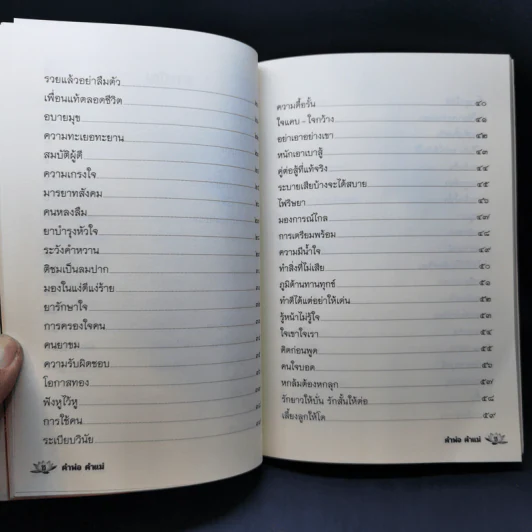 รวยแล้วอย่าลืมตัว
เพื่อนแท้ตลอดชีวิต
อบายมุข
ความทะเยอทะยาน
สมบัติผู้ดี
ความเกรงใจ
มารยาทสังคม
คนหลงลืม
ยาบำรุงหัวใจ
ระวังคำหวาน
ติชมเป็นลมปาก
มองในแง่ดีแง่ร้าย
ยารักษาใจ
การครองใจคน
คนยาขม
ความรับผิดชอบ
โอกาสทอง
ฟังหูไว้หู
การใช้คน
ระเบียบวินัย
คำพ่อ คำแม่
ความดื้อรั้น ๔๐
ใจแคบ - ใจกว้าง ๔๑
อย่าเอาอย่างเขา ๔๒
หนักเอาเบาสู้ ๔๓
คู่ต่อสู้ที่แท้จริง ๔๔
ระบายเสียบ้างจะได้สบาย ๔๕
ไฟริษยา ๔๖
มองการณ์ไกล ๔๗
การเตรียมพร้อม ๔๘
ความมีน้ำใจ ๔๙
ทำสิ่งที่ไม่เสีย ๕๐
ภูมิต้านทานทุกข์ ๕๑
ทำดีได้แต่อย่าให้เด่น ๕๒
รู้หน้าไม่รู้ใจ ๕๓
ใจเขาใจเรา ๕๔
คิดก่อนพูด ๕๕
คนใจบอด ๕๖
หกล้มต้องหกลุก ๕๗
รักยาวให้บั่น รักสั้นให้ต่อ ๕๘
เลี้ยงลูกให้โต ๕๙
คำพ่อ คำแม่